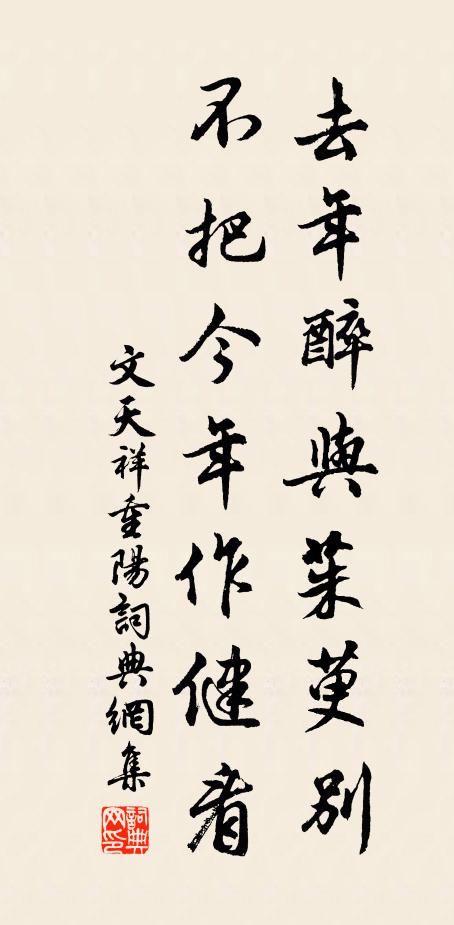 去年醉與茱萸別
不把今年作健看
文天祥重陽詞典網集
詞典網印